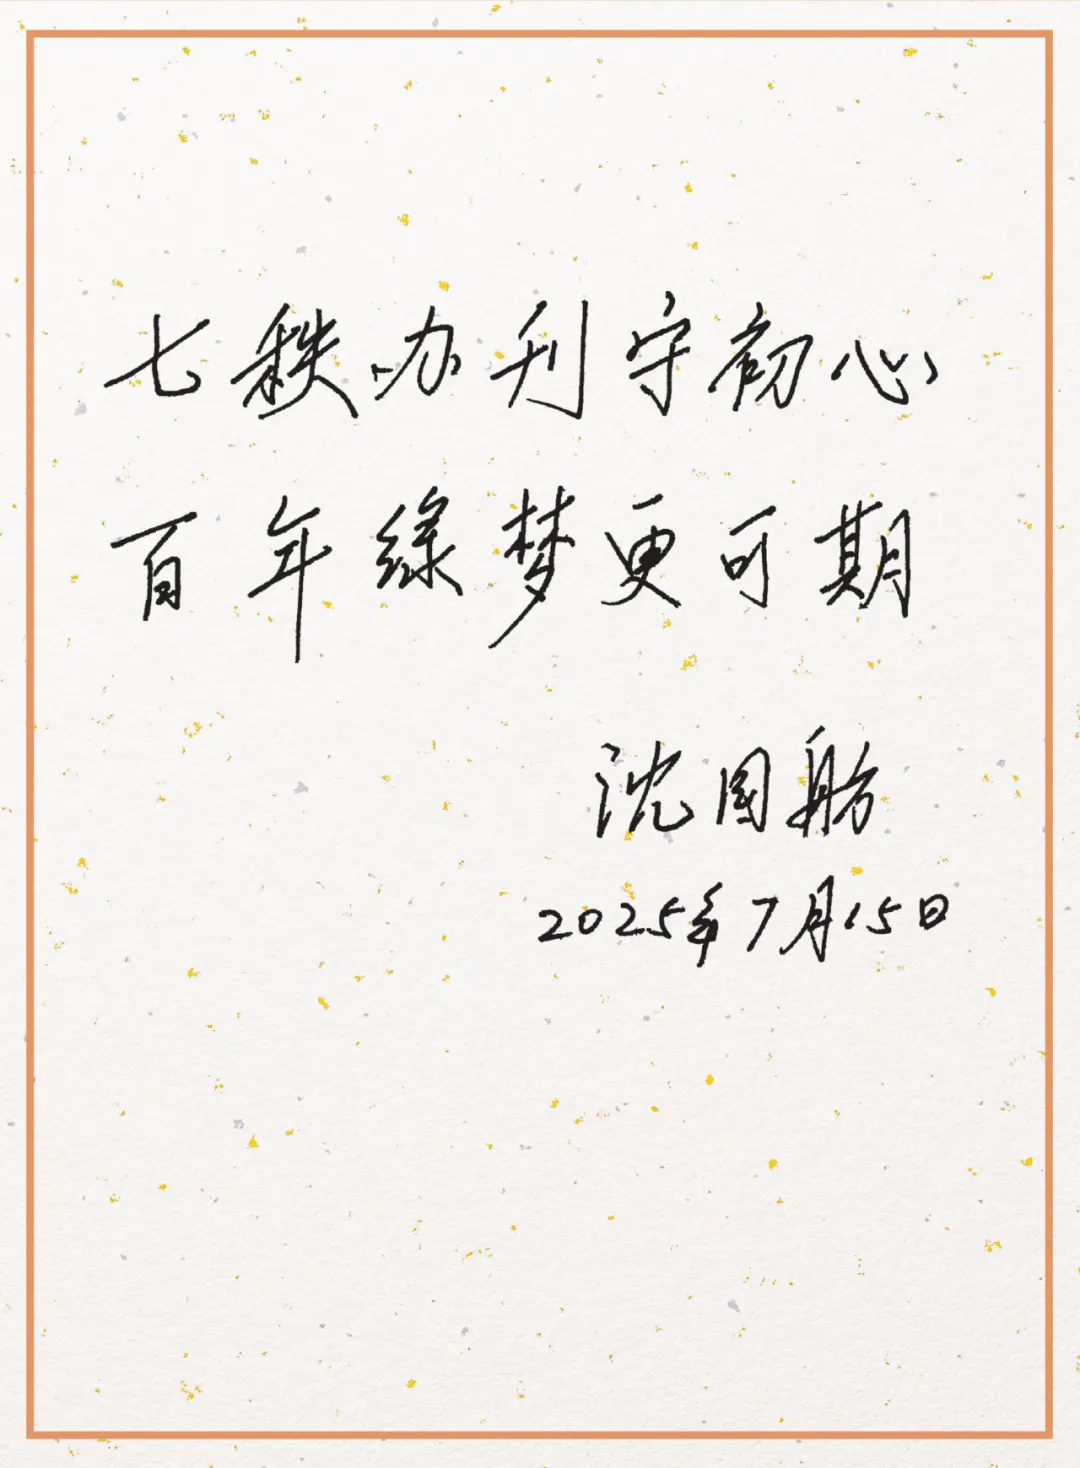 七秩办刊守初心
百年绿梦更可期
沈国舫
2025年7月15日